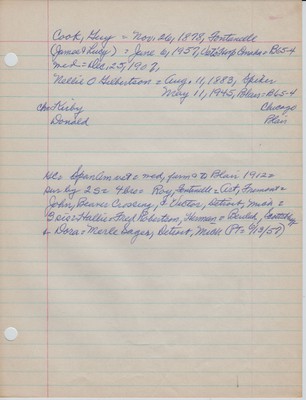 Cook, Guy = Nov. 26, 1878, Fontanelle
(James & Lucy) = June 6, 1957, Vets Hosp Omaha = B65-4
med = Dec. 25, 1907,
Nellie O Gilbertson = Aug. 11, 1883, Spiker
May 11, 1945, Blair = B65-4
Ch = Kirby Chicago
Donald Blair
He = Span Am vet = med, farm = to Blair 1912 =
sur by 2 s = 4 bro = Roy, Fontanelle = Art, Fremont =
John, Beaver Crossing, & Victor, Detroit, Mich =
3 sis = Hallie = Fred Robertson, Herman =
& Dora = Merle Sager, Detroit, Mich (PT = 9/13/57)